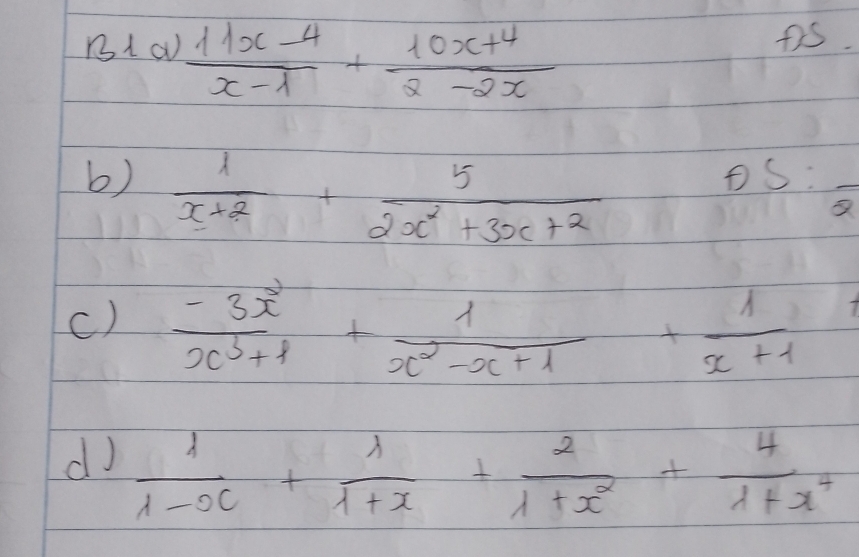 B1 a) (11x - 4)/(x - 1) + (10x + 4)/(2 - 2x) ĐS.
b) 1/(x + 2) + 5/(2x² + 3x + 2) ĐS: /2
c) (-3x²)/(x³ + 1) + 1/(x² - x + 1) + 1/(x + 1)
d) 1/(1 - x) + 1/(1 + x) + 2/(1 + x²) + 4/(1 + x⁴)